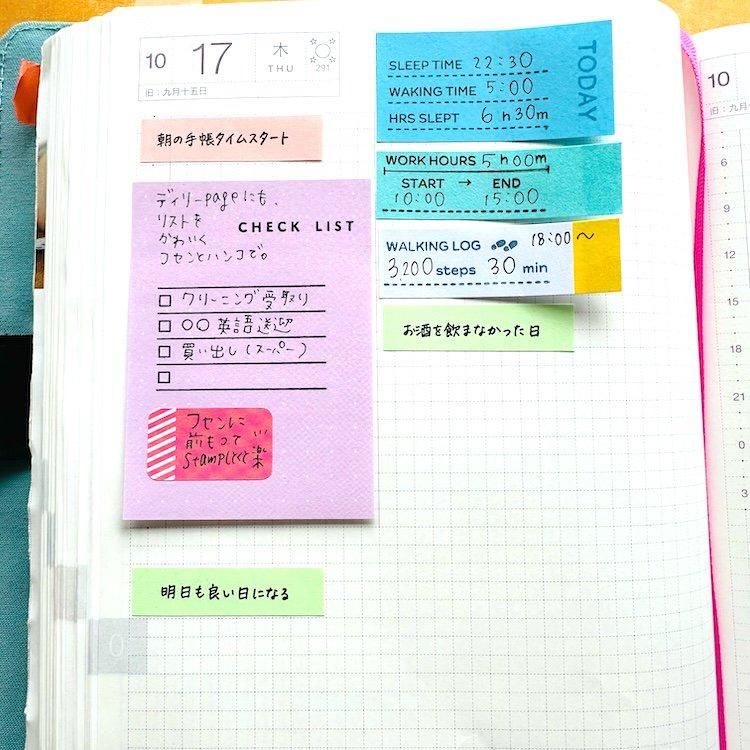 10 17 木
THU 291
旧：九月十五日
朝の手帳タイムスタート
ディリーpageにも、
リストを
かわいく
フセンとハンコで。
CHECK LIST
クリーニング受取り
○○英語送迎
買い出し(スーパー)
フセンに
前もって
Stampしとくと
楽
明日も良い日になる
0
TODAY
SLEEP TIME 22:30
WAKING TIME 5:00
HRS SLEPT 6h30m
WORK HOURS 5h00m
START → END
10:00 15:00
WALKING LOG 18:00〜
3200 steps 30 min
お酒を飲まなかった日
10
6
9
12
15
18
21
0
3